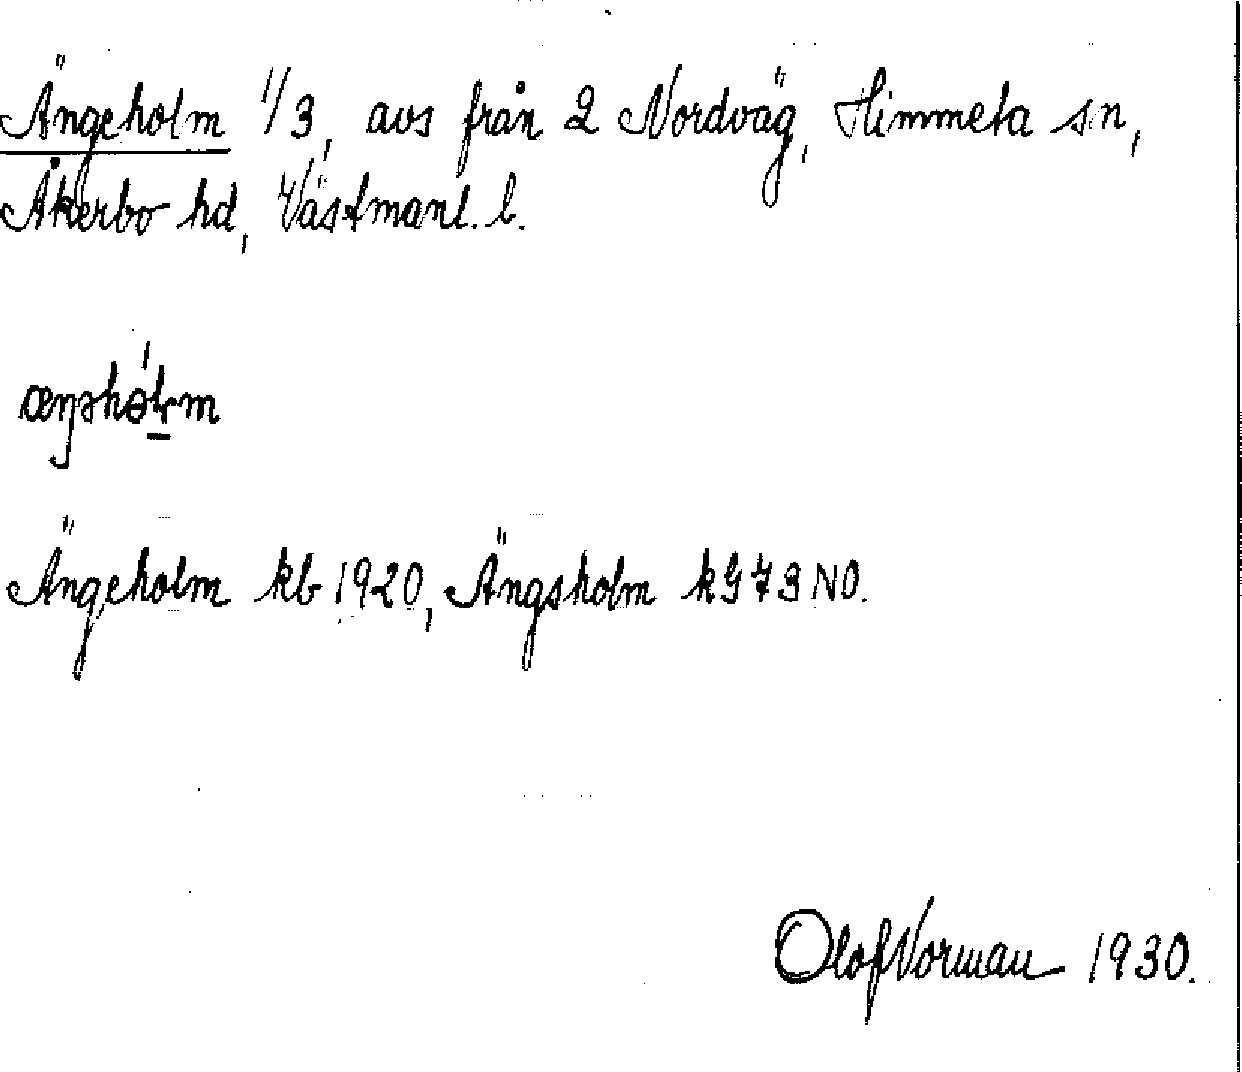 Ängeholm 1/3, avs från 2 Nordväg, Himmeta sn,
Åkerbo hd, Västmanl. l.
Ängeholm kb 1920, Ängsholm kG 73 NO.
Olof Norman 1930.